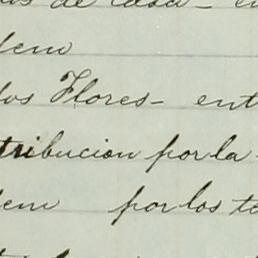 de casa - en
dem
los Flores - ent
tribucion por la
dem por los te